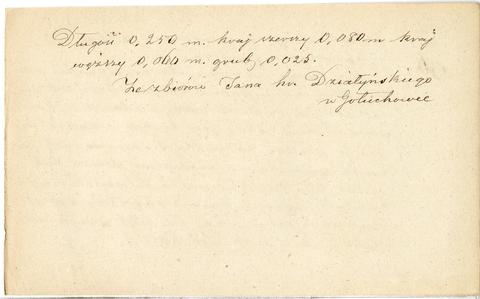 Długość 0,250 m. kraj szerszy 0,080 m kraj
węższy 0,060 m. grub. 0,025.
Ze zbiorów Jana hr. Działyńskiego
w Gołuchowie